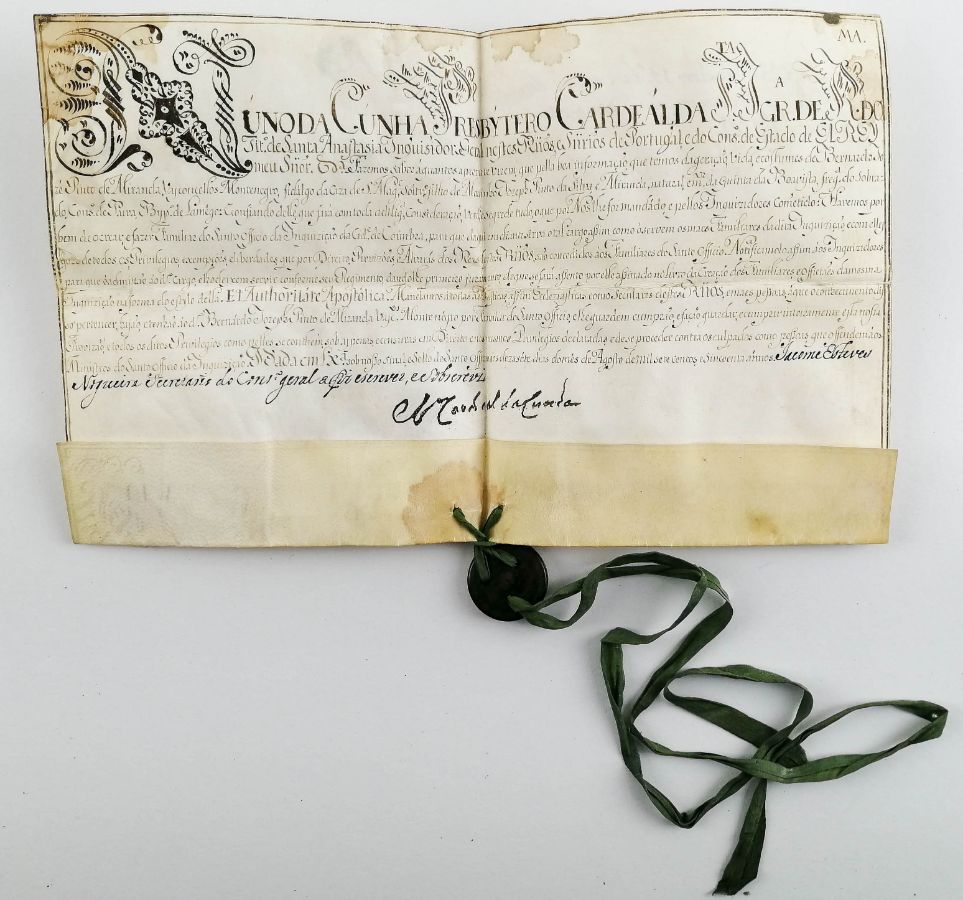 NUNO DA CUNHA PRESBYTERO CARDEAL DA S.TA IGR. DE R.MA DO
Tit.º de Santa Anastasia Inquisidor Geral nestes Rnos, e Snrios de Portugal, e do Cons.º de Estado de EL REY
meu Snõr. Etc. Fazemos saber aquantos aprezente virem, que pella boa informação que temos da geração, vida, ecostumes de Bernardo Jo
zé Pinto de Miranda Vasconcellos Montenegro, fidalgo da Caza de S. Mag.de Solt.ro filho de Joseph Pinto da Sylva e Miranda, natural, em.or da Quinta da Boavista, freg.ª do Sobra
do, Cons.º de Paiva, Bisp.º de Lamego: Econfiando delle, que fará com toda adelig.ª Consideração, Verd.e e segredo tudo oque por Nos lhe for mandado, e pellos Inquizidores cometido: Havemos por
bem de o crear, e fazer Familiar do Santo Officio da Inquizição da Cid.e de Coimbra, para que daqui em diante sirva o tal cargo assim como o servem os mais Familiares da dita Inquizição, e com elle
goze de todos os Privilegios, exempçoẽs, e liberdades que por Direito, Provizões, e Alvarás dos Reys destes RNOS, são concedidos aos Familiares do Santo Officio. Notificamolo assim aos Inquizidores
para que o admitão ao d.º Cargo, e lho deixem servir conforme o seu Regimento, dandolhe primeiro juramento de que se fará assento por elle assinado no livro da Creação dos Familiares, e Officiaes da mesma
Inquizição na forma do estylo della. E Authoritate Apostolica, Mandamos a todas as Justiças assim Eccleziasticas como Seculares destes RNOS, e mais pessoas, a que o conhecimento disto
pertencer, hajão, e tenhão ao d.º Bernardo Joseph Pinto de Miranda Vas.cos Monte Negro por Familiar do Santo Officio, e lhe guardem cumprão, e fação guardar, e cumprir inteiramente esta nossa
Provizão, e todos os ditos Privilegios como nelles se contêm, sob as penas e censuras em Direito, e nos mesmos Privilegios declaradas, e de se proceder contra os culpados como pessoas que offendem aos
Ministros do Santo Officio da Inquizição. Dada em Lx.ª sob nosso sinal, e Sello do Santo Officio aos dezasete dias do mes de Agosto de mil sete centos, e sincoenta annos. Jacome Esteves
Nogueira Secretario do Cons.º geral a fiz escrever, e sobscrevi.
N. Cardeal da Cunha